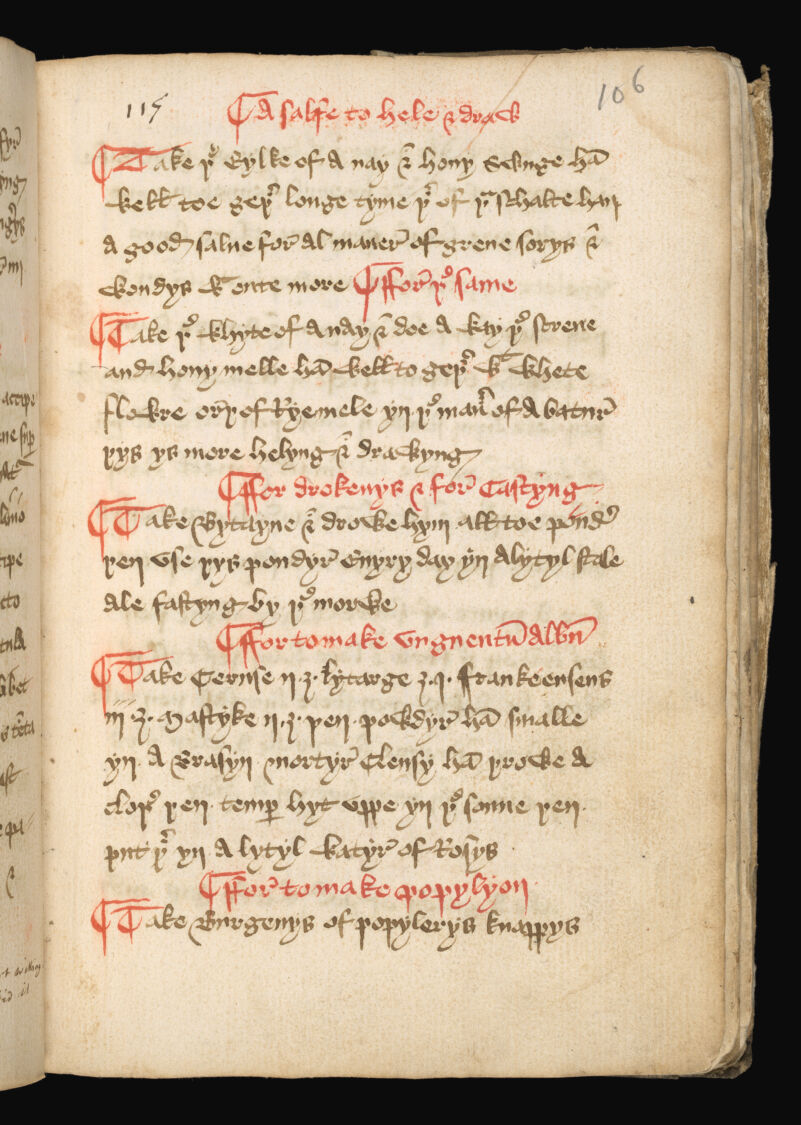 115 106
A salfe to hele & draw
Take þe Gylke of A nay & hony swnge hā
well toe geþer longe tyme þer of þu schalte han
a good salue for al maner of grene sorys &
wondys Wonte more ffor þe same
Take þe whyte of A nay & doe A way þe strene
and hony melle hā well to geþer wt whete
flowre or þe of Rye mele yn þe maner of A batur
þys ys more helyng & drawyng
ffor drokenys & for Castyng
Take Bytayne & drowe hym all toe ponder
þen vse þys pondyr Euyry day yn A lytyl stale
ale fastyng by þe morwe
ffor to make vngnentū Albū
Take Ceruse ij ʒ. lytarge ʒ. j. ffrankeensens
iij. ʒ. Mastyke ij. ʒ. þen. powdyr hā smalle
yn. A Brasyn. mortyr Clensy hā þrowe A
cloþe þen. temper hyt vppe yn þe sonne þen.
put þer yn A lytyl watyr of Rosys
ffor to make popylyon
Take Burgenys of popylerys knappys